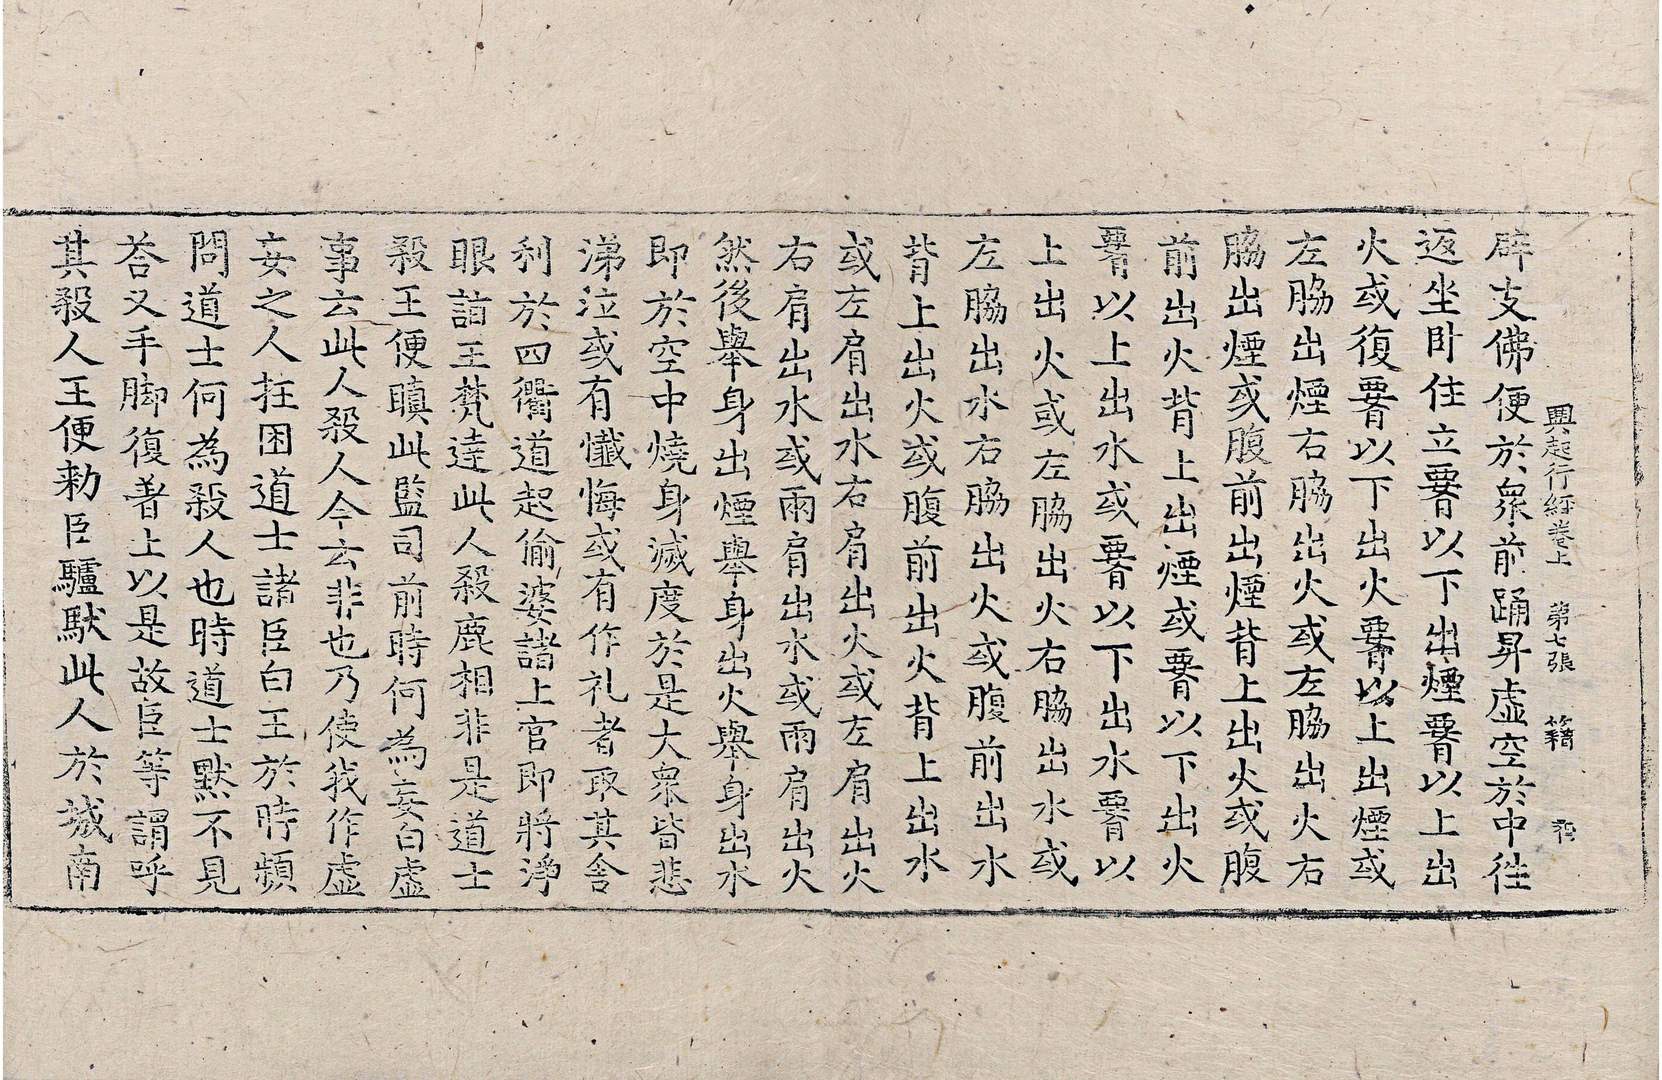 興起行經卷上 第七張 籍
辟支佛便於衆前踊昇虛空於中往
返坐卧住立𦝫以下出煙𦝫以上出
火或復𦝫以下出火𦝫以上出煙或
左脇出煙右脇出火或左脇出火右
脇出煙或腹前出煙背上出火或腹
前出火背上出煙或𦝫以下出火
𦝫以上出水或𦝫以下出水𦝫以
上出火或左脇出火右脇出水或
左脇出水右脇出火或腹前出水
背上出火或腹前出火背上出水
或左肩出水右肩出火或左肩出火
右肩出水或兩肩出水或兩肩出火
然後舉身出煙舉身出火舉身出水
即於空中燒身滅度於是大衆皆悲
涕泣或有懺悔或有作礼者取其舍
利於四衢道起偷婆諸上官即將淨
眼詣王梵達此人殺鹿相非是道士
殺王便瞋此監司前時何為妄白虛
事云此人殺人今云非也乃使我作虛
妄之人抂困道士諸臣白王於時頻
問道士何為殺人也時道士默不見
荅又手脚復著土以是故臣等謂呼
其殺人王便勑臣驢馱此人於城南